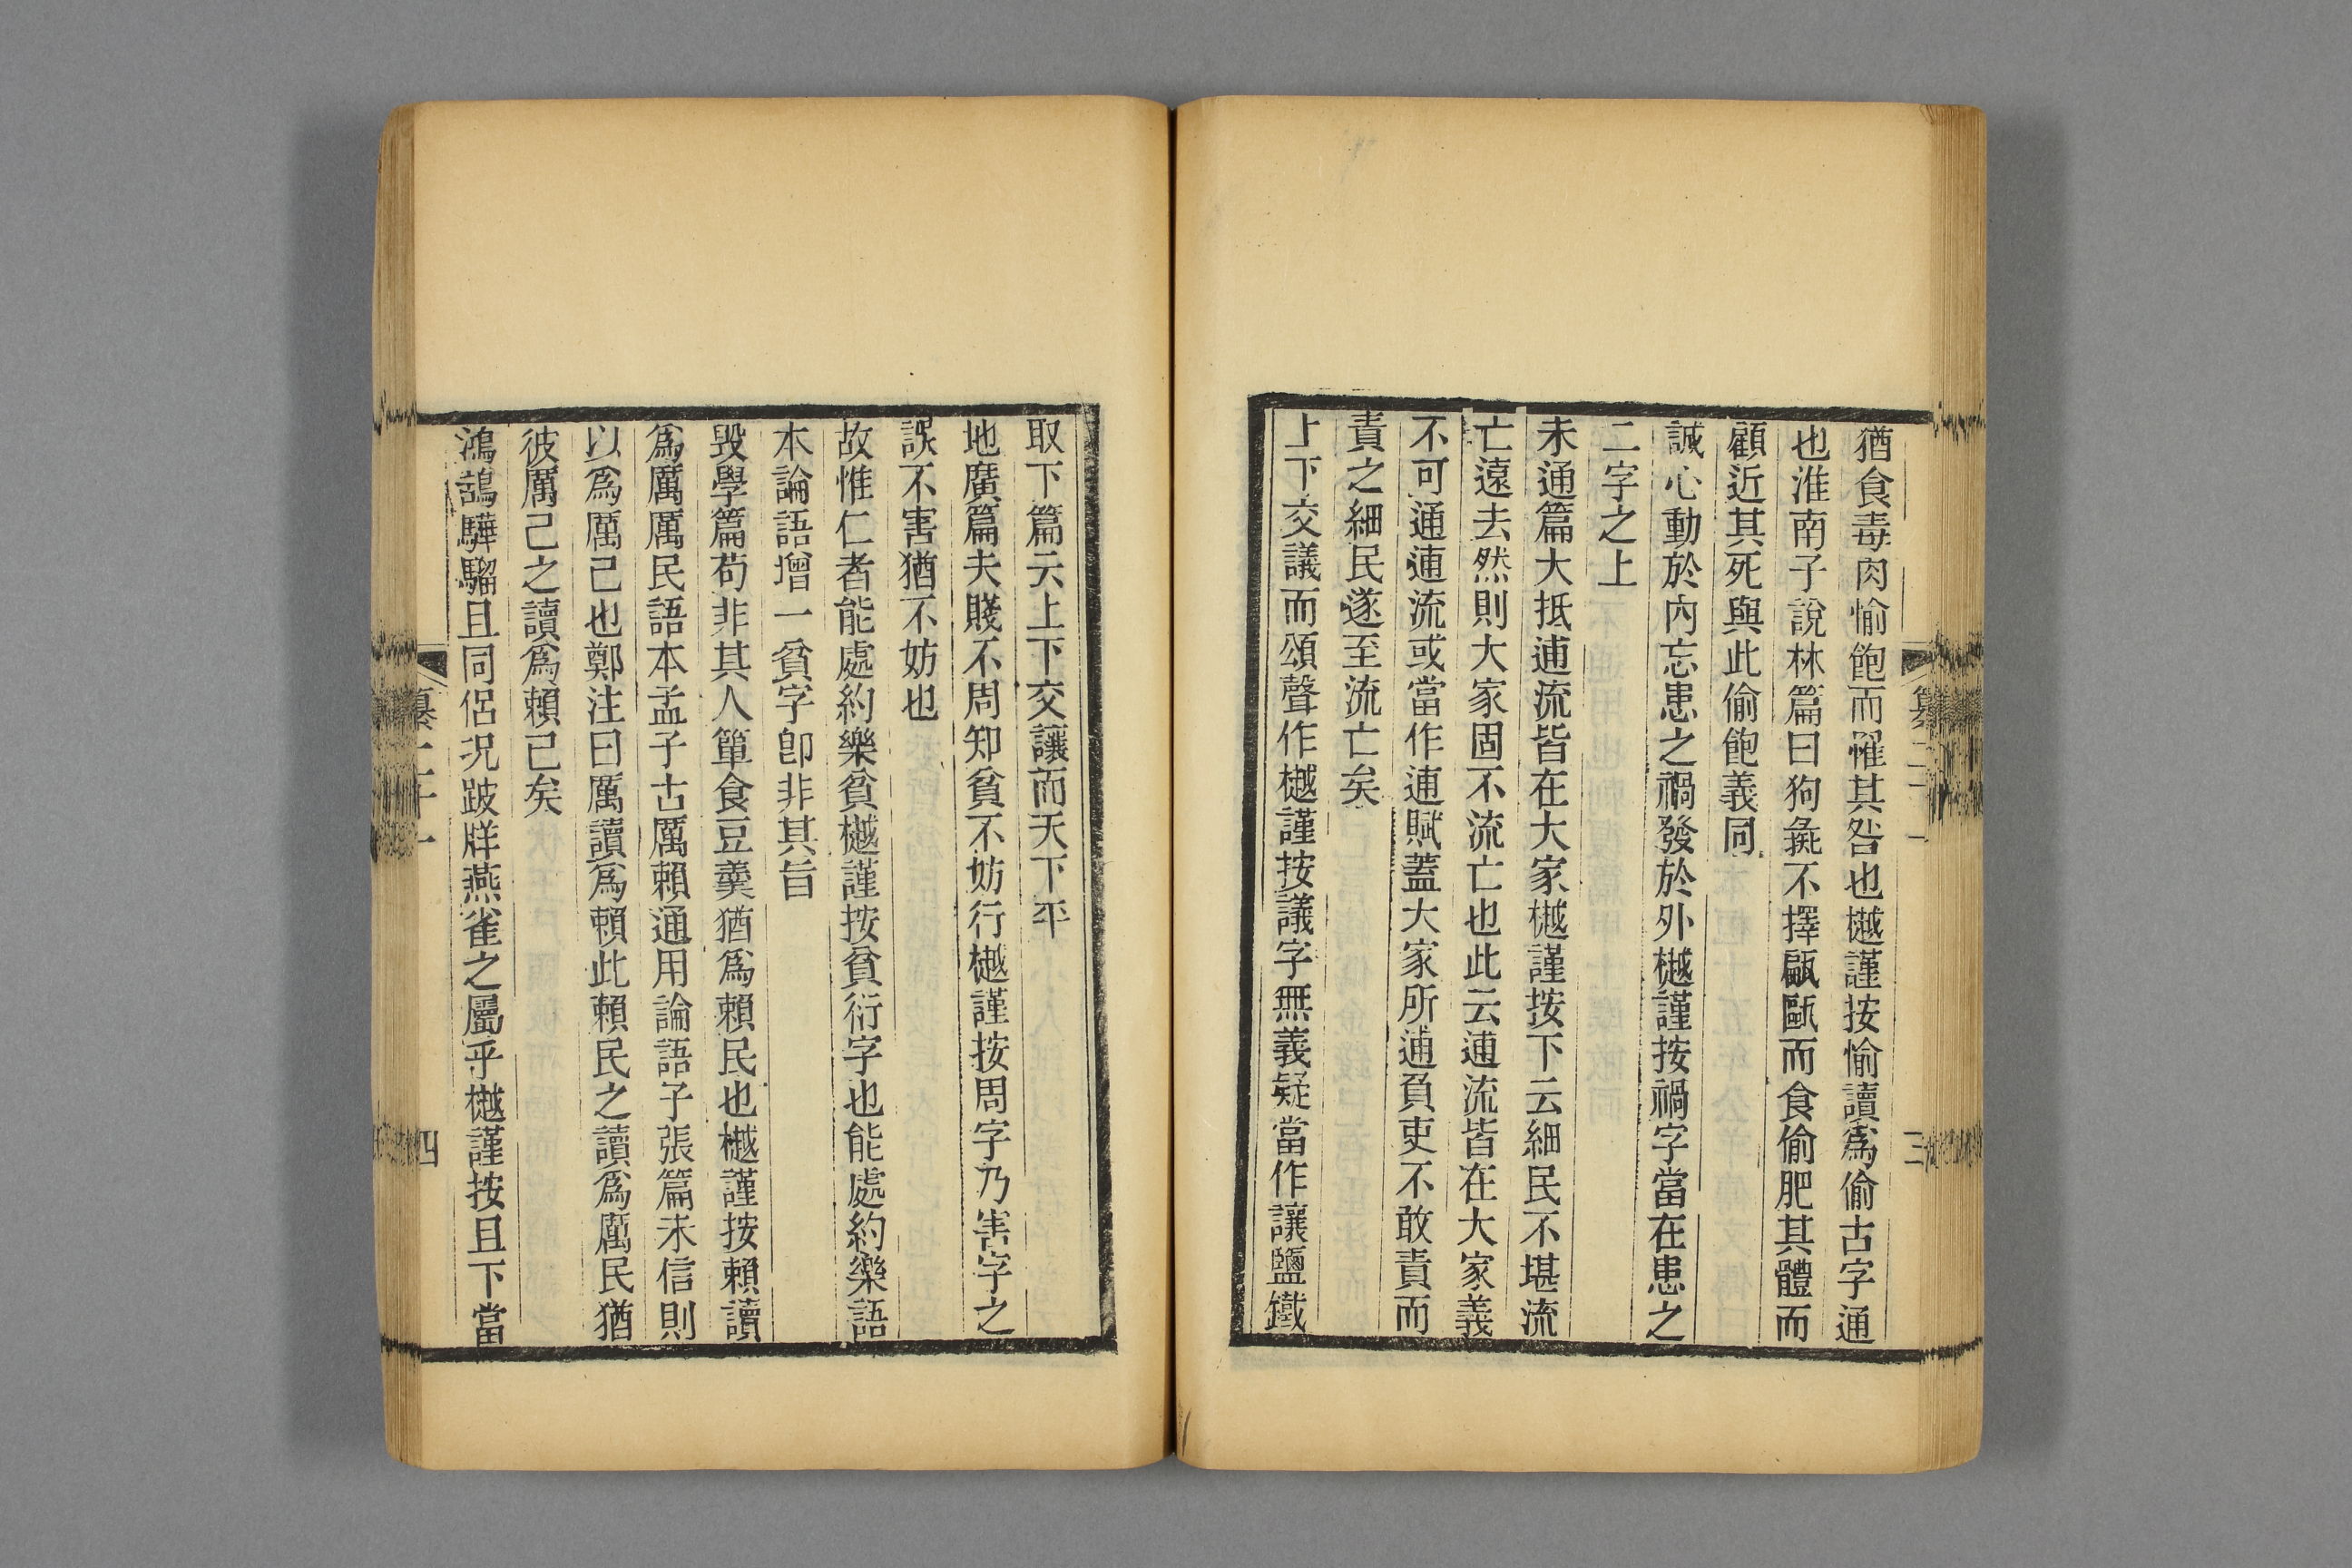 猶食毒肉愉飽而罹其咎也樾謹按愉讀爲偷古字通
也淮南子說林篇曰狗彘不擇甂甌而食偷肥其體而
顧近其死與此偷飽義同
誠心動於內忘患之禍發於外樾謹按禍字當在患之
二字之上
未通篇大抵逋流皆在大家樾謹按下云細民不堪流
亡遠去然則大家固不流亡也此云逋流皆在大家義
不可通逋流或當作逋賦蓋大家所逋負吏不敢責而
責之細民遂至流亡矣
上下交議而頌聲作樾謹按議字無義疑當作讓鹽鐵
取下篇云上下交讓而天下平
地廣篇夫賤不周知貧不妨行樾謹按周字乃害字之
誤不害猶不妨也
故惟仁者能處約樂貧樾謹按貧衍字也能處約樂語
本論語增一貧字卽非其旨
毀學篇苟非其人簞食豆羹猶爲賴民也樾謹按賴讀
爲厲厲民語本孟子古厲賴通用論語子張篇未信則
以爲厲己也鄭注曰厲讀爲賴此賴民之讀爲厲民猶
彼厲己之讀爲賴己矣
鴻鵠驊騮且同侶況跛牂燕雀之屬乎樾謹按且下當
纂二十一
三
纂二十一
四